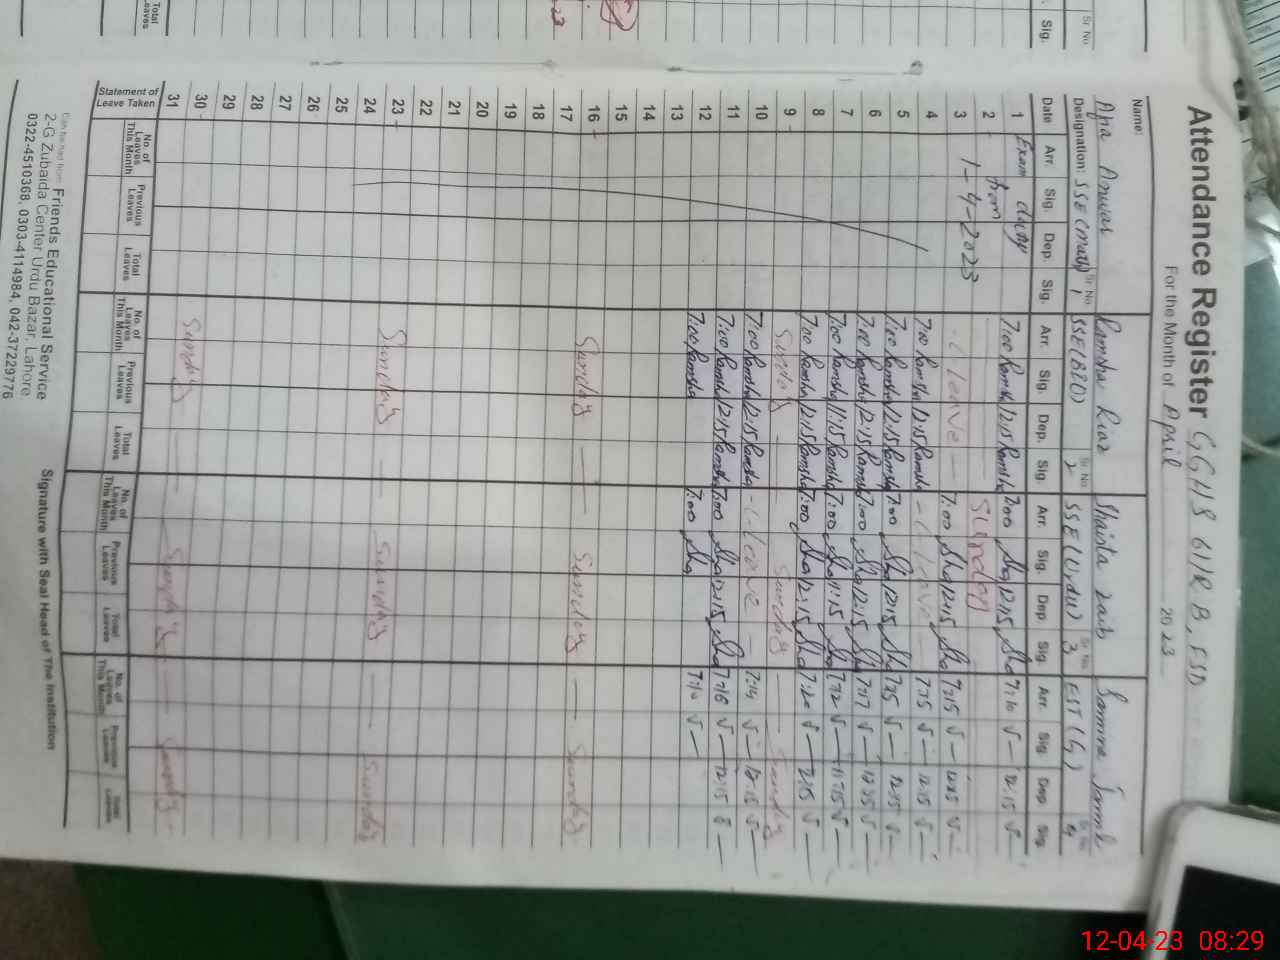 Attendance Register GGHS 61 R.B, FSD
For the Month of April 2023
Name: Ramsha Riaz Shaista Zaib
Designation: SSE(Math) Sr No 1 SSE(BIO) Sr No. 2 SSE(Urdu) Sr No. 3 EST(G) Sr No. 4
Date Arr. Sig. Dep. Sig. Arr. Sig. Dep. Sig. Arr. Sig. Dep. Sig. Arr. Sig. Dep. Sig.
1 Exam duty 7:00 Ramsha 12:15 Ramsha 7:00 Sha 12:15 Sha 12:15
2 from Sunday
3 1-4-2023 C leave 7:00 Sha 12:15 Sha 7:15
4 7:00 Ramsha 12:15 Ramsha C leave 12:15
5 7:00 Ramsha 12:15 Ramsha 7:00 Sha 12:15 Sha
6 7:00 Ramsha 12:15 Ramsha 7:00 Sha 12:15 Sha 7:17
7 7:00 Ramsha 11:15 Ramsha 7:00 Sha 11:15 Sha 11:15
8 7:00 Ramsha 12:15 Ramsha 7:00 Sha 12:15 Sha 7:20
9 Sunday Sunday Sunday
10 7:00 Ramsha 12:15 Ramsha C leave 7:14 12:15
11 7:00 Ramsha 12:15 Ramsha 7:00 Sha 12:15 Sha 7:16 12:15
12 7:00 Ramsha 7:00 Sha
13
14
15
16 Sunday Sunday Sunday
17
18
19
20
21
22
23 Sunday Sunday Sunday
24
25
26
27
28
29
30 Sunday Sunday Sunday
31
Statement of Leave Taken No. of Leaves This Month Previous Leaves Total Leaves No. of Leaves This Month Previous Leaves Total Leaves No. of Leaves This Month Previous Leaves Total Leaves No. of Leaves This Month Previous Leaves Total Leaves
Can be had from: Friends Educational Service Signature with Seal Head of The Institution
2-G Zubaida Center Urdu Bazar, Lahore.
0322-4510368, 0303-4114984, 042-37229776
Sr No
Sig.
Total Leaves
12-04-23 08:29